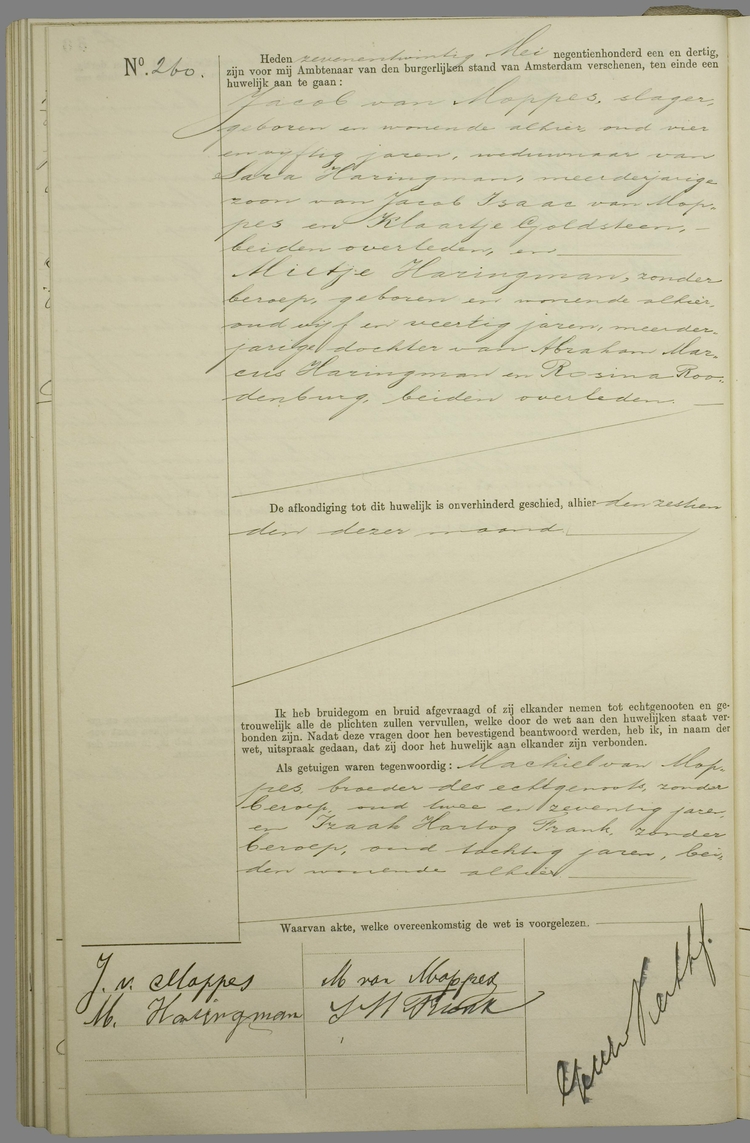 No. 260.
Heden zevenentwintig Mei negentienhonderd een en dertig,
zijn voor mij Ambtenaar van den burgerlijken stand van Amsterdam verschenen, ten einde een
huwelijk aan te gaan:
Jacob van Moppes, slager,
geboren en wonende alhier, oud vier
en vijftig jaren, weduwnaar van
Sara Haringman, meerderjarige
zoon van Jacob Isaac van Mop-
pes en Klaartje Goldsteen,
beiden overleden, en
Mietje Haringman, zonder
beroep, geboren en wonende alhier,
oud vijf en veertig jaren, meerder-
jarige dochter van Abraham Mar-
cus Haringman en Rosina Roo-
denburg, beiden overleden.
De afkondiging tot dit huwelijk is onverhinderd geschied, alhier den zestien
den dezer maand.
Ik heb bruidegom en bruid afgevraagd of zij elkander nemen tot echtgenooten en ge-
trouwelijk alle de plichten zullen vervullen, welke door de wet aan den huwelijken staat ver-
bonden zijn. Nadat deze vragen door hen bevestigend beantwoord werden, heb ik, in naam der
wet, uitspraak gedaan, dat zij door het huwelijk aan elkander zijn verbonden.
Als getuigen waren tegenwoordig: Machiel van Mop-
pes, broeder des echtgenoots, zonder
beroep, oud twee en zeventig jaren,
en Izaak Hartog Frank, zonder
beroep, oud tachtig jaren, bei-
den wonende alhier.
Waarvan akte, welke overeenkomstig de wet is voorgelezen.
J. v. Moppes
M van Moppes
M. Haringman
I H Frank